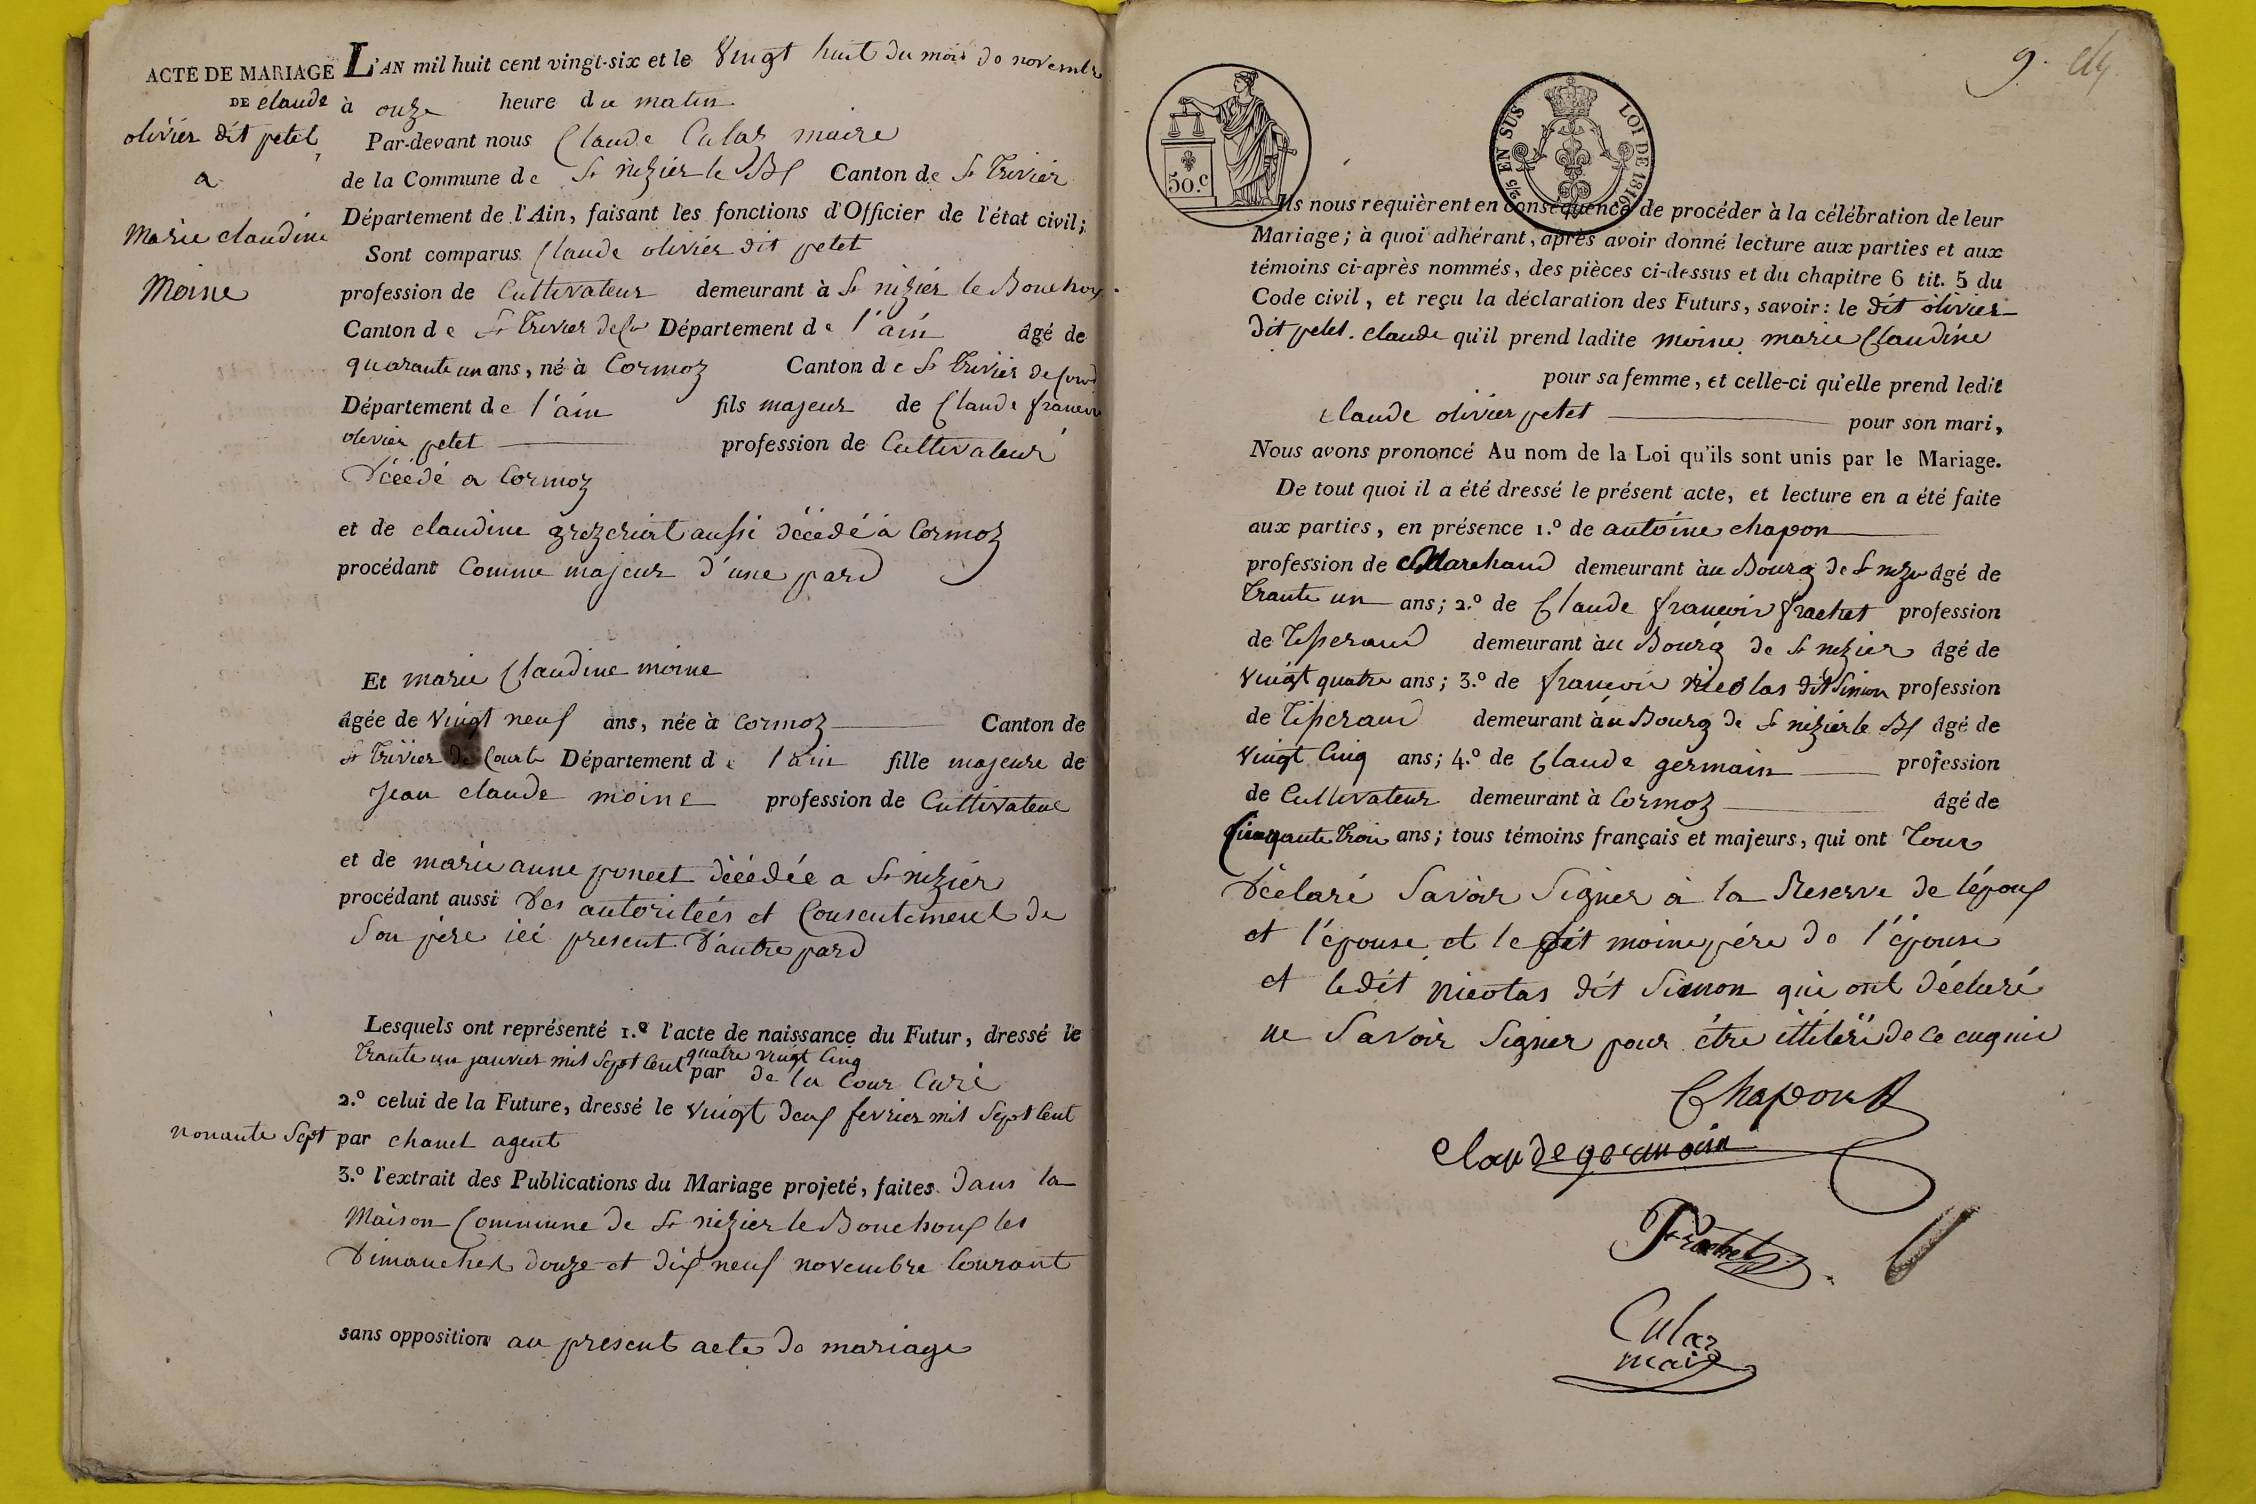 ACTE DE MARIAGE
DE claude
olivier dit petet
a
Marie claudine
Moine
L'AN mil huit cent vingt-six et le Vingt huit du mois de novembre
à onze heure du matin
Par-devant nous Claude Culaz maire
de la Commune de St nizier le Bx Canton de St Trivier
Département de l'Ain, faisant les fonctions d'Officier de l'état civil;
Sont comparus Claude olivier dit petet
profession de Cultivateur demeurant à St nizier le Bouchoux
Canton de St Trivier de Département de l'ain âgé de
quarante un ans, né à Cormoz Canton de St Trivier de
Département de l'ain fils majeur de Claude
olivier petet profession de Cultivateur
Décédé a Cormoz
et de claudine aussi décédé à Cormoz
procédant Comme majeur d'une pard
Et marie Claudine moine
âgée de Vingt neuf ans, née à Cormoz Canton de
St Trivier de Courte Département de l'ain fille majeure de
Jean claude moine profession de Cultivateur
et de marie anne poncet décédée a St nizier
procédant aussi Des autoriteés et Consentement de
Son père ici present D'autre pard
Lesquels ont représenté 1.º l'acte de naissance du Futur, dressé le
trante un janvier mil Sept Cent quatre vingt Cinq
par de la Cour Curé
2.º celui de la Future, dressé le Vingt deux fevrier mil Sept Cent
nonante Sept par chanel agent
3.º l'extrait des Publications du Mariage projeté, faites Dans la
Maison Commune de St nizier le Bouchoux les
Dimanches douze et dix neuf novembre Courant
sans opposition au present acte de mariage
9.
50.c
2/5 EN SUS
LOI DE 1816
Ils nous requièrent en conséquence de procéder à la célébration de leur
Mariage; à quoi adhérant, après avoir donné lecture aux parties et aux
témoins ci-après nommés, des pièces ci-dessus et du chapitre 6 tit. 5 du
Code civil, et reçu la déclaration des Futurs, savoir: le dit olivier
dit petet. claude qu'il prend ladite moine marie Claudine
pour sa femme, et celle-ci qu'elle prend ledit
claude olivier petet pour son mari,
Nous avons prononcé Au nom de la Loi qu'ils sont unis par le Mariage.
De tout quoi il a été dressé le présent acte, et lecture en a été faite
aux parties, en présence 1.º de antoine chapon
profession de Marchand demeurant àu Bourg de St nizier âgé de
Trante un ans; 2.º de Claude francois frachet profession
de Tisserand demeurant àu Bourg de St nizier âgé de
Vingt quatre ans; 3.º de francois nicolas dit Simon profession
de Tisserand demeurant àu Bourg de St nizier le Bx âgé de
Vingt Cinq ans; 4.º de Claude germain profession
de Cultivateur demeurant à Cormoz âgé de
Cinquante trois ans; tous témoins français et majeurs, qui ont Tous
Déclaré Savoir Signer à la Reserve de l'époux
et l'épouse et le dit moine père de l'épouse
et ledit nicolas dit Simon qui ont déclaré
ne Savoir Signer pour être illiteré de ce enquis
Chapon
claude germain
Frachet
Culaz
maire